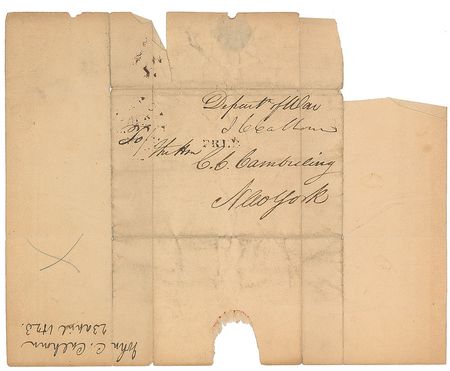 Depart of War
J C Calhoun
FREE
The Hon
C. C. Cambreleng
New York
John C. Calhoun
23 April 1823